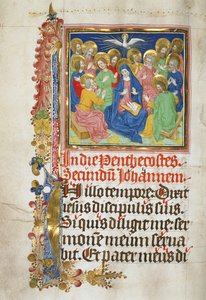 In die Penthecostes
Secundum Johannem
In illo tempore. Dixit
iesus discipulis suis.
Si quis diligit me: ser
monem meum serva
bit. Et pater meus di